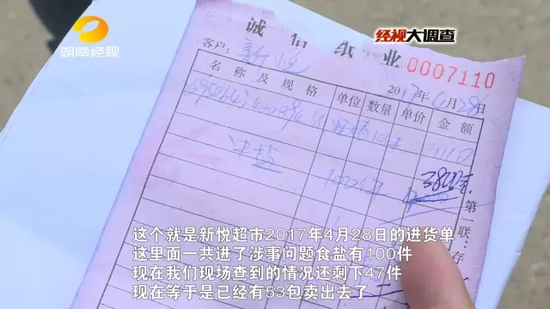 湖南经视
经视大调查
诚信纸业
0007110
客户：新悦
2017年4月28日
名称及规格 单位 数量 单价 金额
第一联：存
这个就是新悦超市2017年4月28日的进货单
这里面一共进了涉事问题食盐有100件
现在我们现场查到的情况还剩下47件
现在等于是已经有53包卖出去了